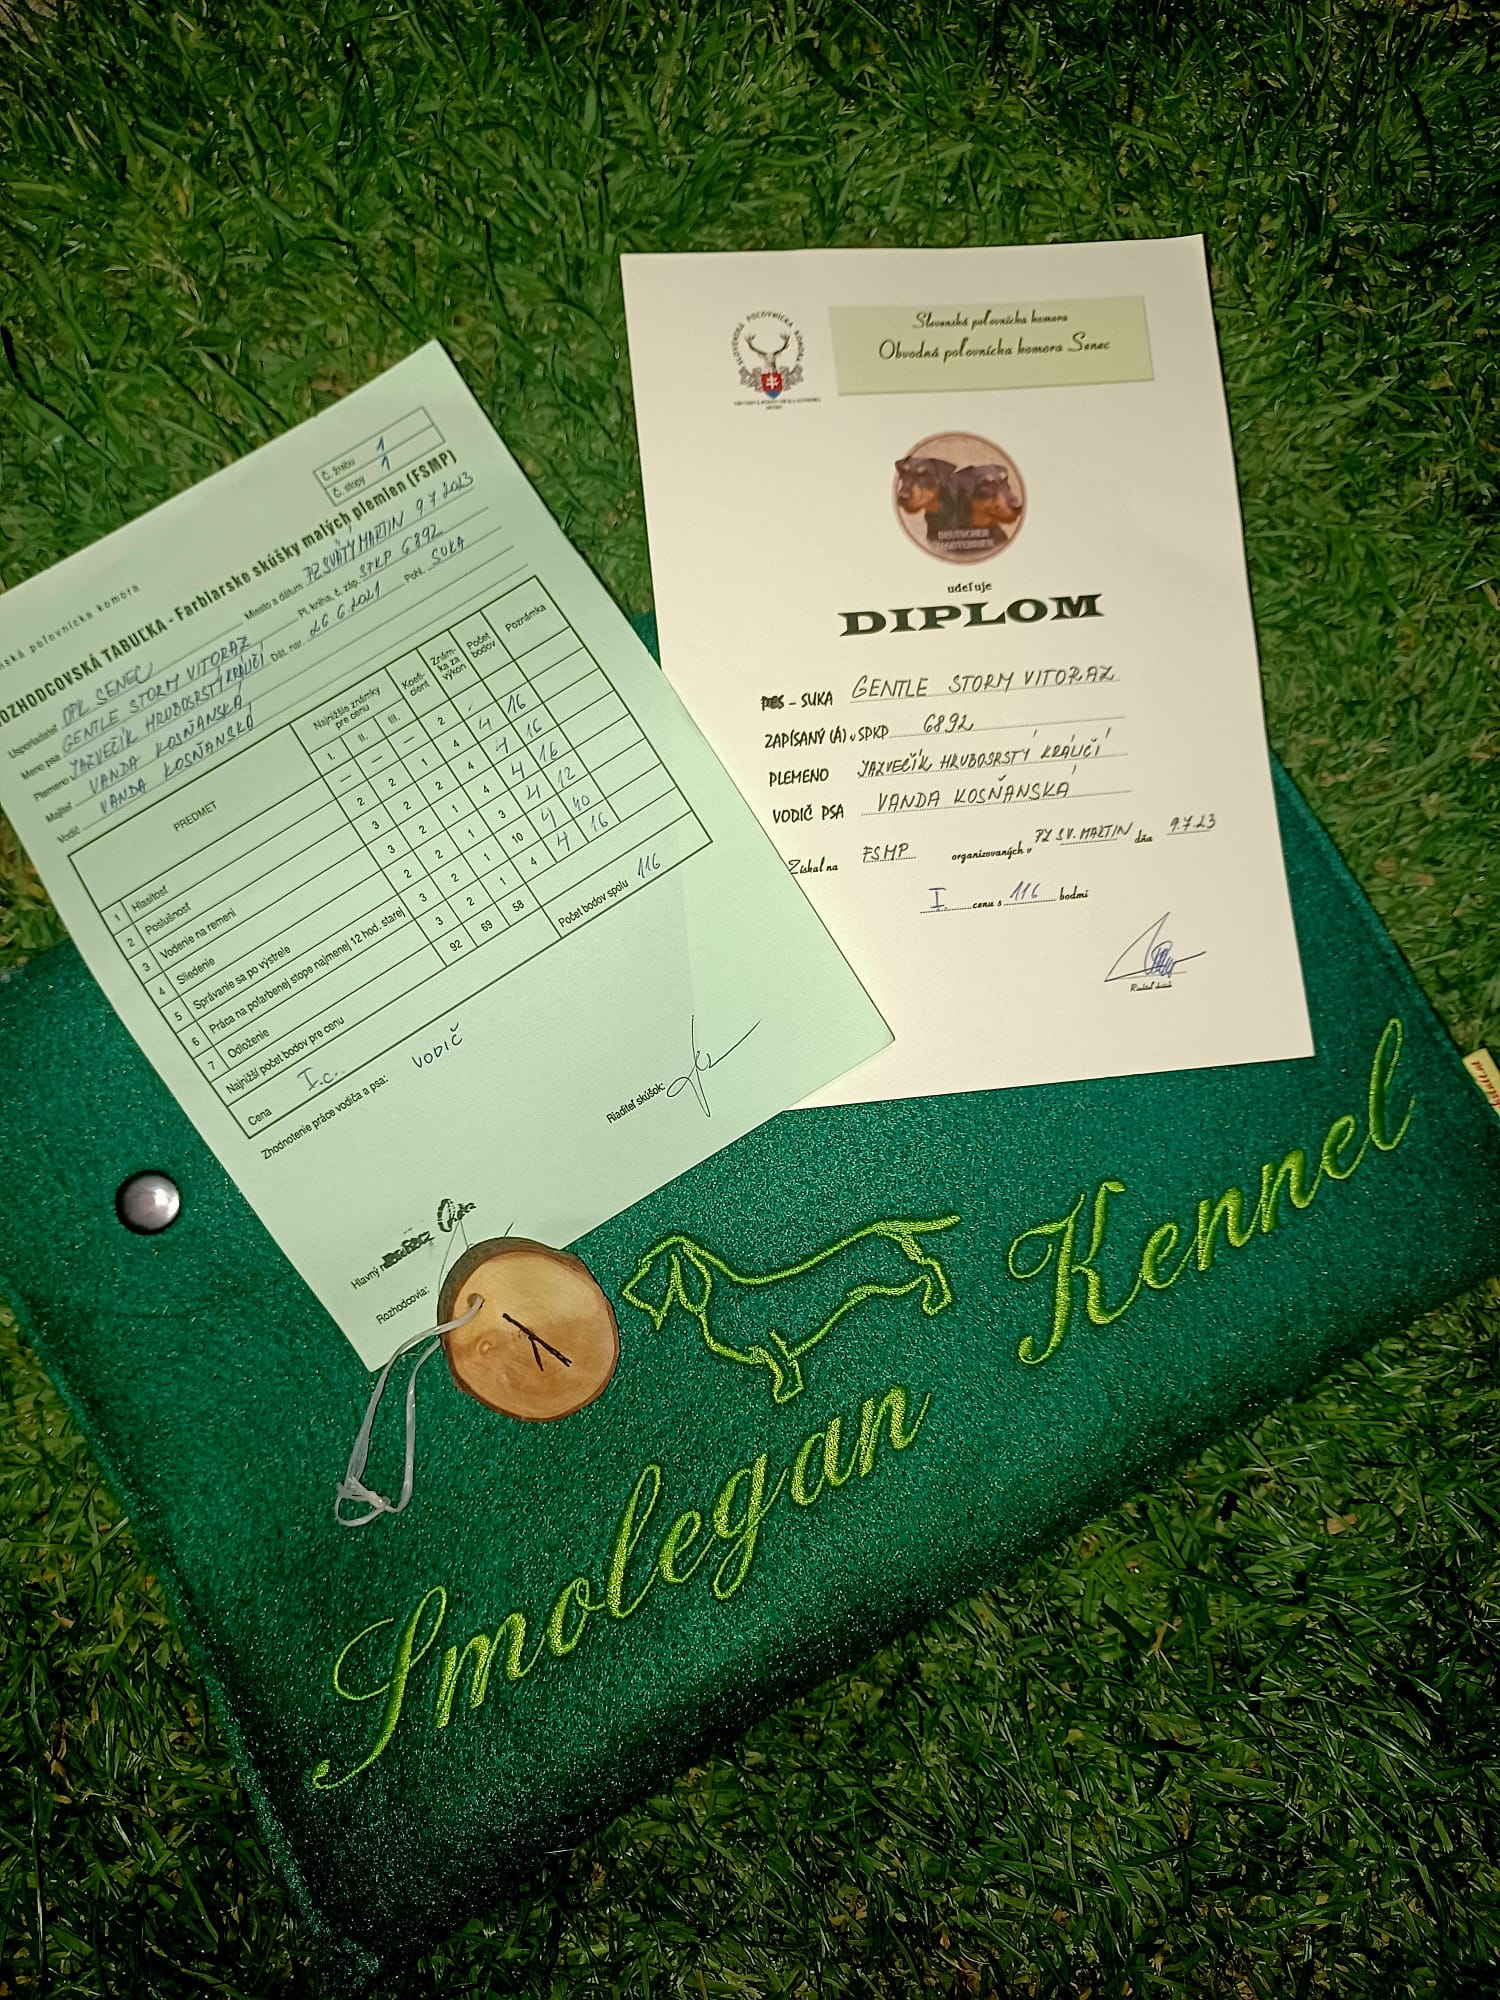 Č. žrebu 1
Č. stopy 1
nská poľovnícka komora
ROZHODCOVSKÁ TABUĽKA - Farbiarske skúšky malých plemien (FSMP)
Usporiadateľ OPK SENEC Miesto a dátum PZ SVÄTÝ MARTIN 9.7.2023
Meno psa GENTLE STORM VITORAZ Pl. kniha, č. záp. SPKP 6892
Plemeno JAZVEČÍK HRUBOSRSTÝ KRÁLIČÍ Dát. nar. 26.6.2021 Pohl. SUKA
Majiteľ VANDA KOSŇANSKÁ
Vodič VANDA KOSŇANSKÁ
PREDMET
Najnižšie známky pre cenu
I. II. III.
Koefi-cient
Znám-ka za výkon
Počet bodov
Poznámka
1 Hlasitosť — — 2
2 Poslušnosť 2 2 1 4 4 16
3 Vodenie na remeni 3 2 2 4 4 16
4 Sliedenie 3 2 1 4 4 16
5 Správanie sa po výstrele 2 2 1 3 4 12
6 Práca na pofarbenej stope najmenej 12 hod. starej 3 2 1 10 4 40
7 Odloženie 3 2 1 4 4 16
Najnižší počet bodov pre cenu 92 69 58
Cena I.c. Počet bodov spolu 116
Zhodnotenie práce vodiča a psa: VODIČ
Riaditeľ skúšok:
Hlavný
Rozhodcovia:
SLOVENSKÁ POĽOVNÍCKA KOMORA
Slovenská poľovnícka komora
Obvodná poľovnícka komora Senec
DEUTSCHER
JAGDTERRIER
udeľuje
DIPLOM
PES - SUKA GENTLE STORM VITORAZ
ZAPÍSANÝ (Á) v SPKP 6892
PLEMENO JAZVEČÍK HRUBOSRSTÝ KRÁLIČÍ
VODIČ PSA VANDA KOSŇANSKÁ
Získal na FSMP organizovaných v PZ SV. MARTIN dňa 9.7.23
I. cenu s 116 bodmi
Riaditeľ skúšok
Smolegan Kennel